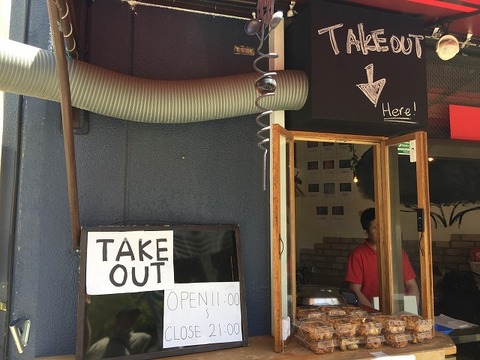 TAKEOUT
Here!
TAKE
OUT
OPEN 11:00
S
CLOSE 21:00